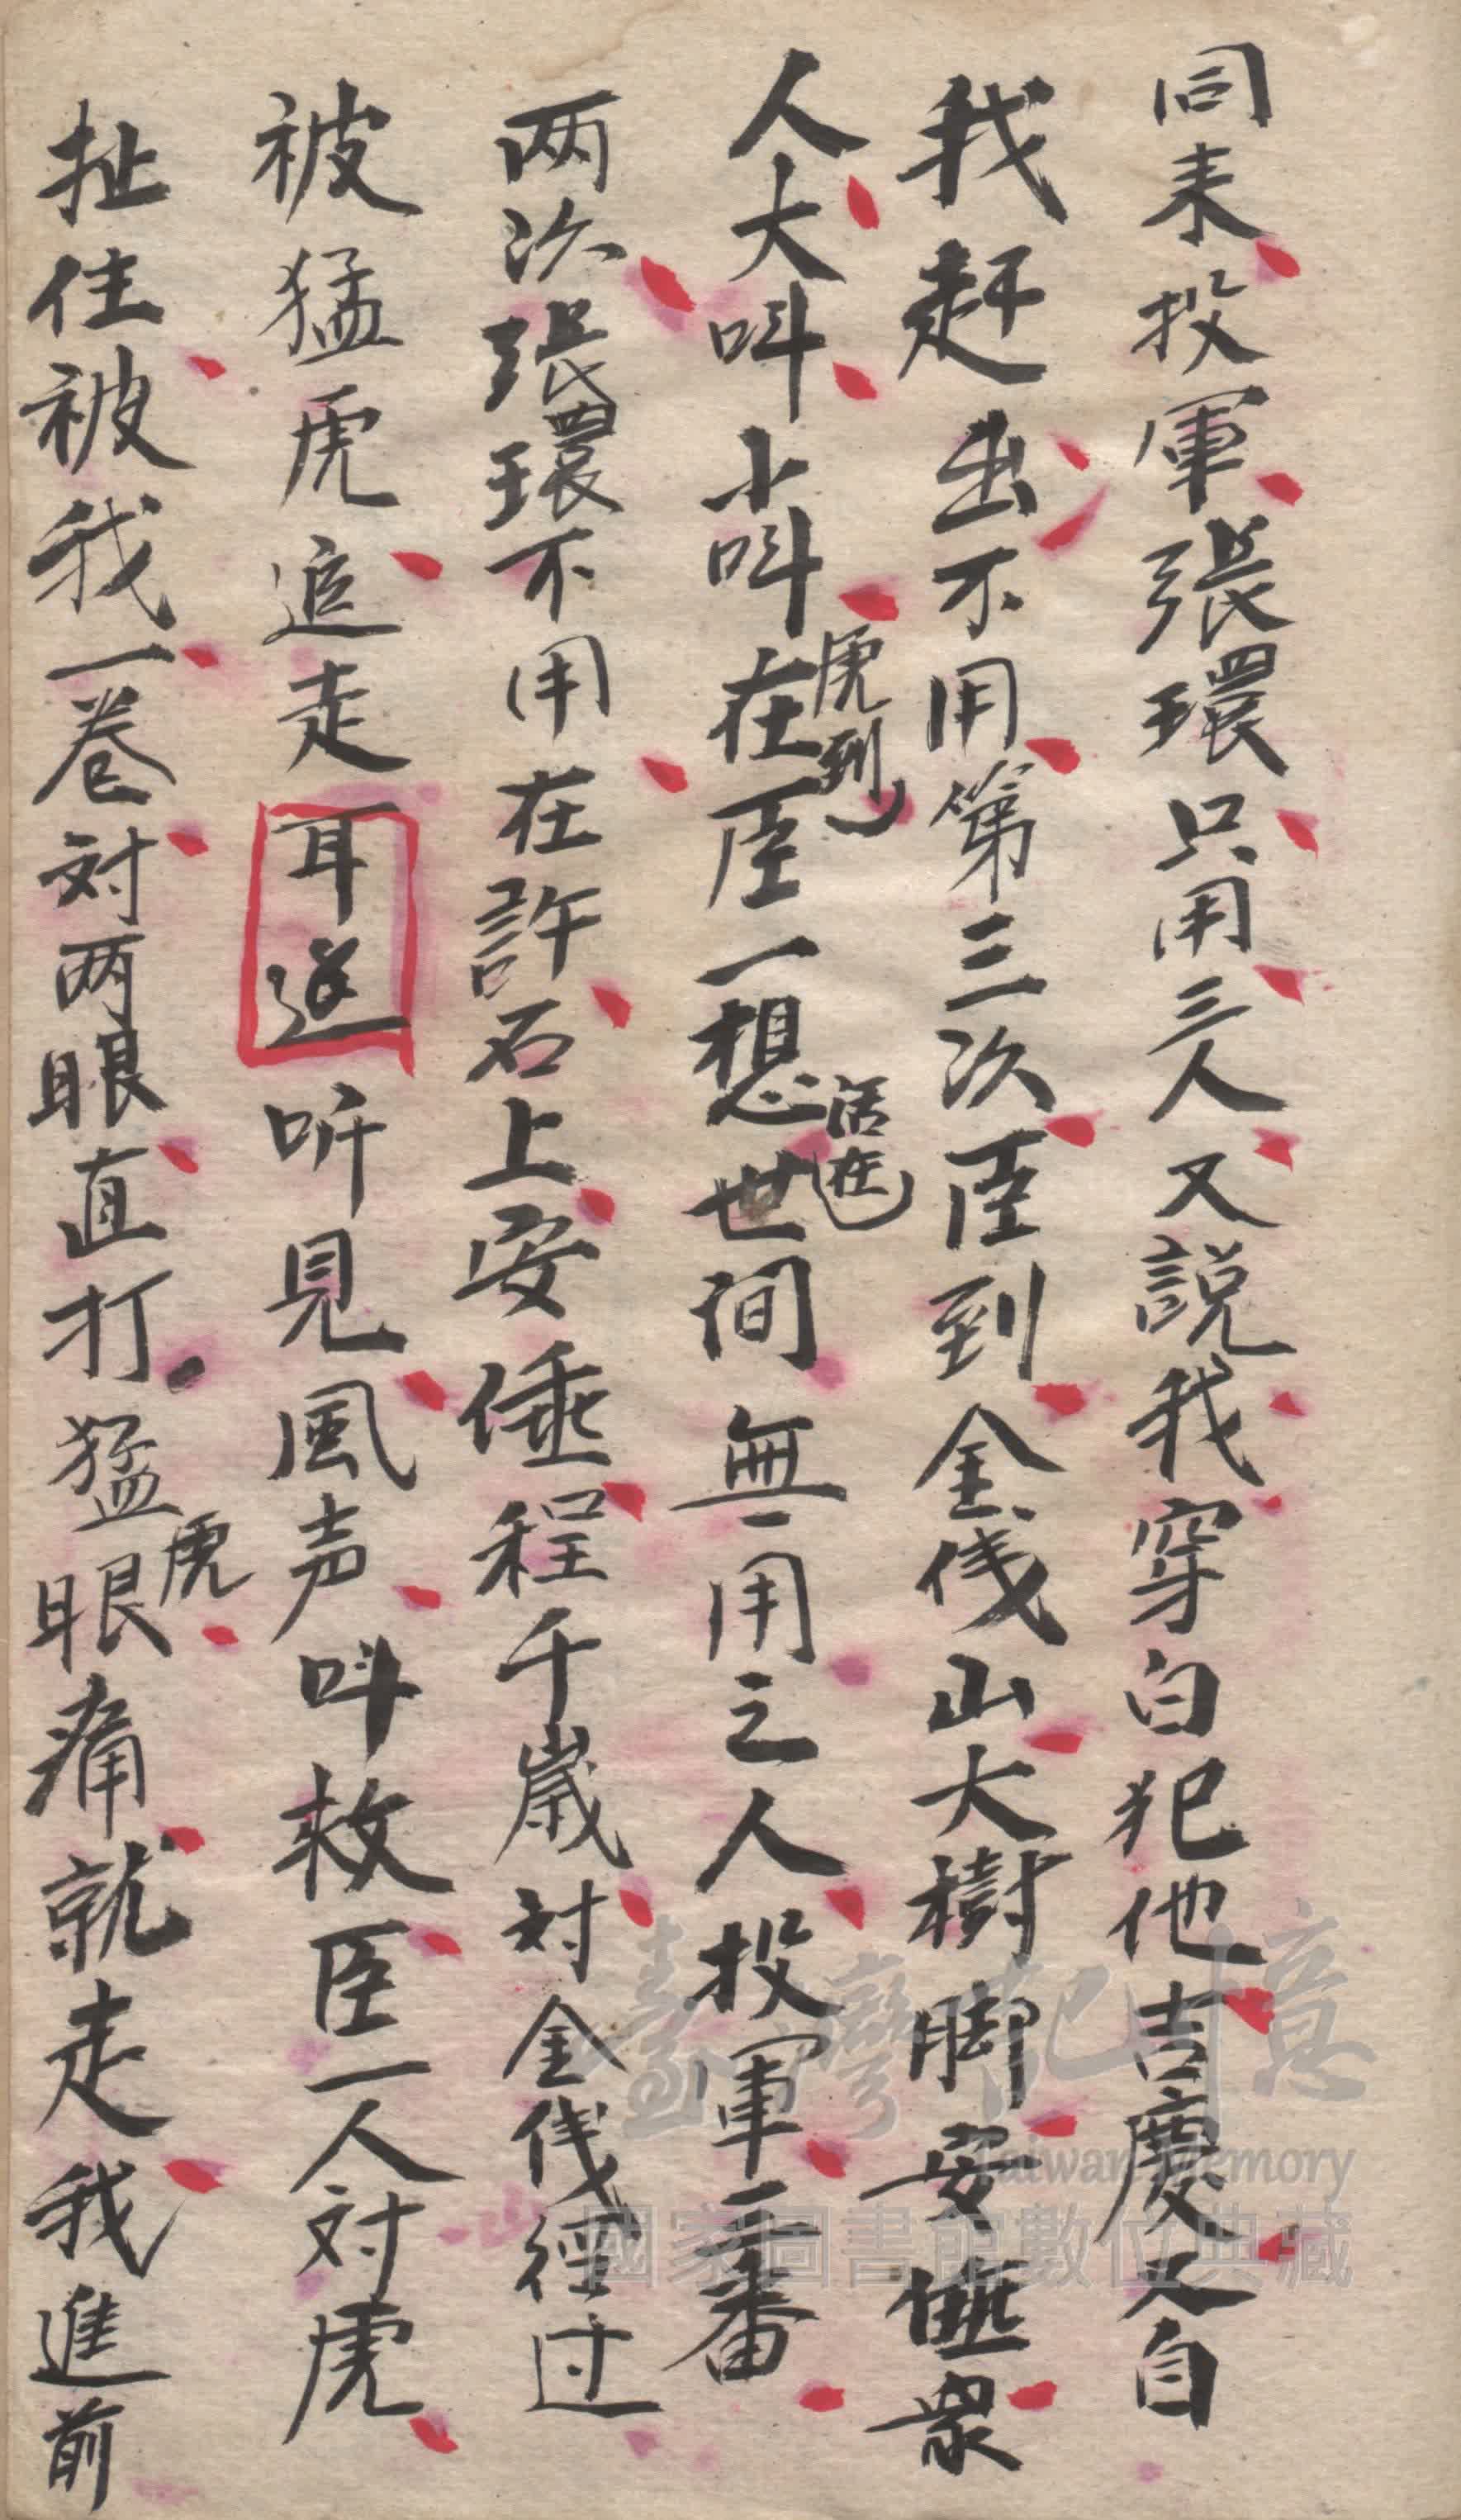 同来投軍張環只用三人又說我穿白犯他吉慶又自
我赶出不用第三次臣到金伐山大樹脚安睡衆
人大叫小叫在臣一想世间無用之人投軍二番
虎到
活在
两次張環不用在許石上安睡程千歲对金伐徑过
被猛虎追走耳送听見風声叫救臣一人対虎
扯住被我一巻対两眼直打猛眼痛就走我進前
虎
臺灣記憶
Taiwan Memory
國家圖書館數位典藏